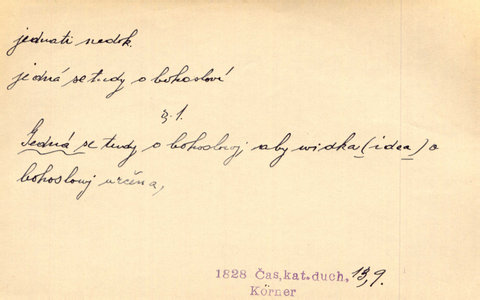 jednati nedok.
jedná se tudy o bohosloví
§. 1.
Gedná se tudy o bohoslowj aby widka (idea) o
bohoslowj určena,
1828 Čas, kat. duch, 13, 9.
Körner